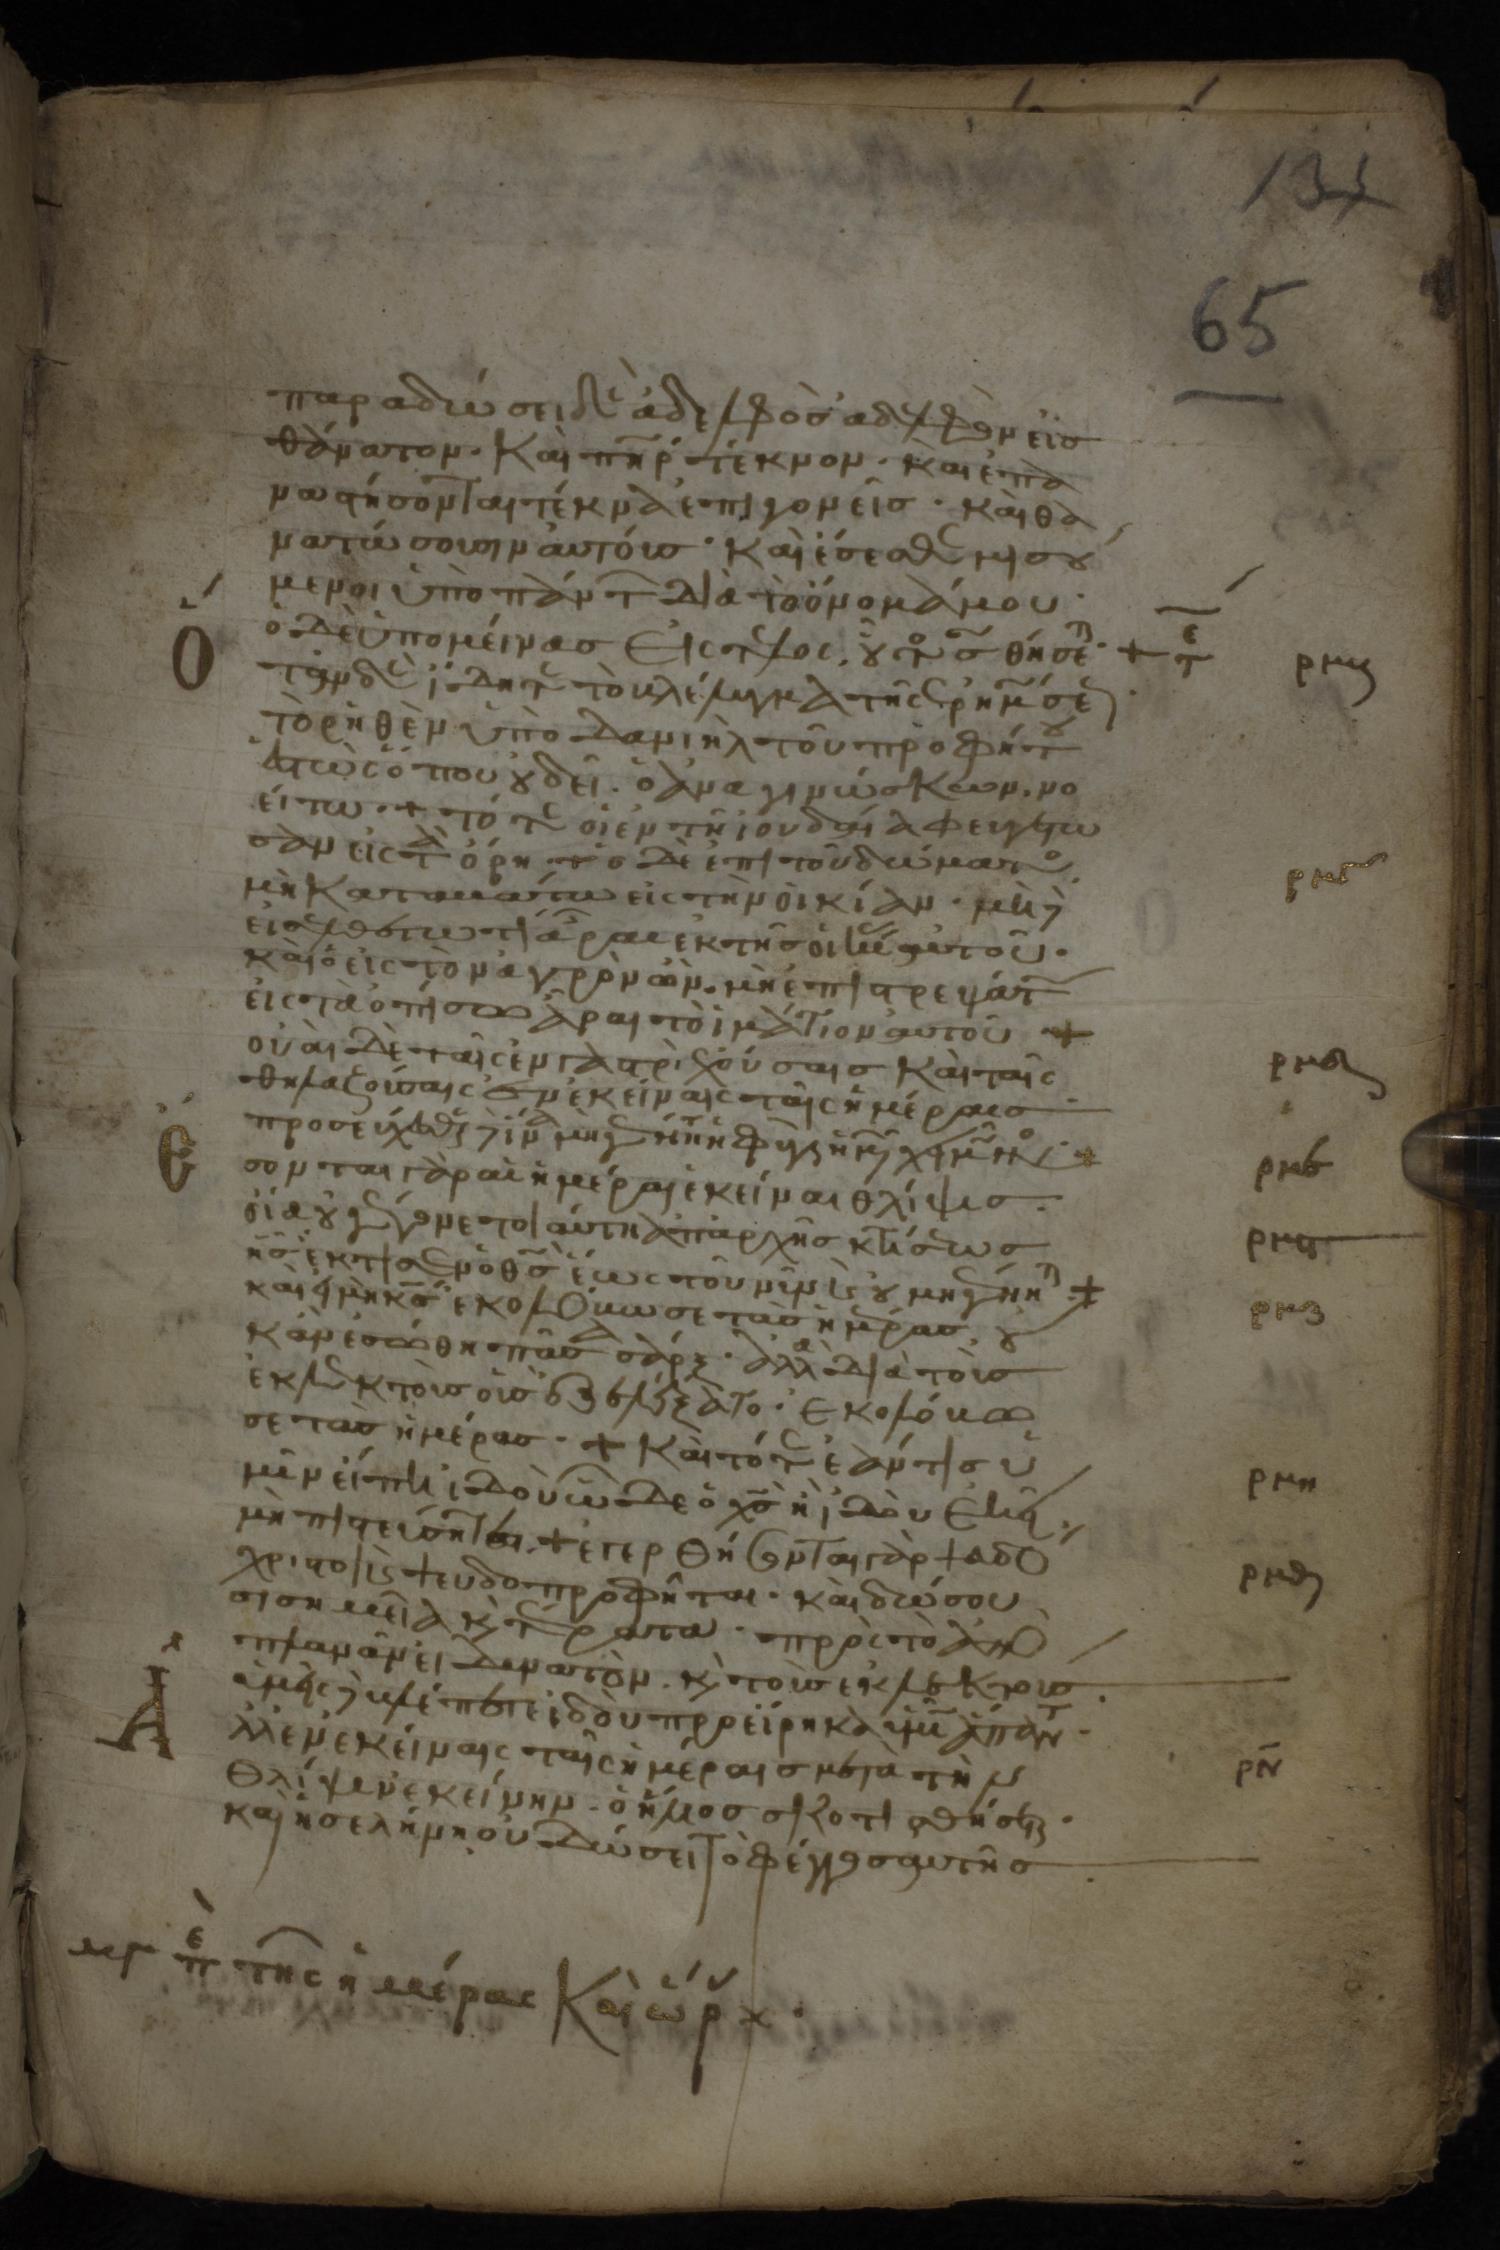 131
65
παραδώσει δὲ ἀδελφὸς ἀδελφὸν εἰς
θάνατον · Καὶ πηρ τέκνον · καὶ ἐπα
ναστήσονται τέκνα ἐπι γονεῖς · καὶ θα
νατώσουσιν αυτόυς · Καὶ ἔσεσθε μισου
μενοι ὑπὸ πάντ διὰ τὸ ὄνομά μου ·
ὁ δὲ ὑπομείνας εἰς τέλος, οὗτος σωθήσε +
ὅταν δὲ ἴδητε τὸ βδέλυγμα τῆς ἐρημώσε
τὸ ρηθὲν ὑπὸ Δανιὴλ τοῦ προφήτου
ἑστὼς ὅπου οὐ δεῖ · ὁ ἀναγινώσκων, νο
είτω · + τότε οἱ ἐν τῇ ἰουδαίᾳ φευγέτω
σαν εἰς τὰ ὄρη + ὁ δὲ ἐπι τοῦ δώματος
μὴ Καταβάτω εἰς τὴν οἰκίαν · μηδὲ
εἰσελθέτω τι ἆραι ἐκ τῆς οἰκίας αὐτοῦ ·
καὶ ὁ εἰς τὸν ἀγρὸν ὢν, μὴ ἐπιστρεψάτω
εἰς τὰ ὀπίσω ἆραι τὸ ἱμάτιον αὐτοῦ +
οὐαὶ δὲ ταῖς ἐν γαστρὶ ἐχούσαις Καὶ ταῖς
θηλαζούσαις ἐν ἐκείναις ταῖς ἡμέραις
προσεύχεσθε δὲ ἵνα μὴ γένηται ἡ φυγὴ ὑμῶν χειμῶνος · +
ἔσονται γὰρ αἱ ἡμέραι ἐκείναι θλίψις ·
οἵα οὐ γέγονε τοιαύτη ἀπ ἀρχῆς κτίσεως
ἧς ἔκτισεν ὁ θς ἕως τοῦ νῦν καὶ οὐ μὴ γένη +
καὶ εἰ μὴ κς ἐκολόβωσε τὰς ἡμέρας, οὐ
κ ἂν ἐσώθη πᾶσα σάρξ · ἀλλὰ διὰ τοὺς
ἐκλεκτοὺς οὓς ἐξελέξατο · ἐκολόβω
σε τὰς ἡμέρας · + Καὶ τότε ἐάν τις ὑ
μῖν εἴπῃ ἰδοὺ ὧδε ὁ χς ἢ ἰδοὺ ἐκεῖ,
μὴ πιστεύσητε, + ἐγερθήσονται γὰρ ψευδο
χριστοι καὶ ψευδοπροφῆται · καὶ δώσου
σι σημεῖα καὶ τέρατα · πρὸς τὸ ἀπο
πλανᾶν εἰ δυνατὸν · καὶ τοὺς ἐκλεκτους
ὑμεῖς δὲ βλέπετε ἰδοὺ προείρηκα ὑμῖν ἅπαντα ·
Ἀλλ ἐν ἐκείναις ταῖς ἡμέραις μετὰ τὴν
θλίψιν ἐκείνην · ὁ ἥλιος σκοτισθήσεται ·
καὶ ἡ σελήνη οὐ δώσει τὸ φέγγος αὐτῆς
τῆς ἡμέρας Καὶ ὥρ
ρμη
ρν